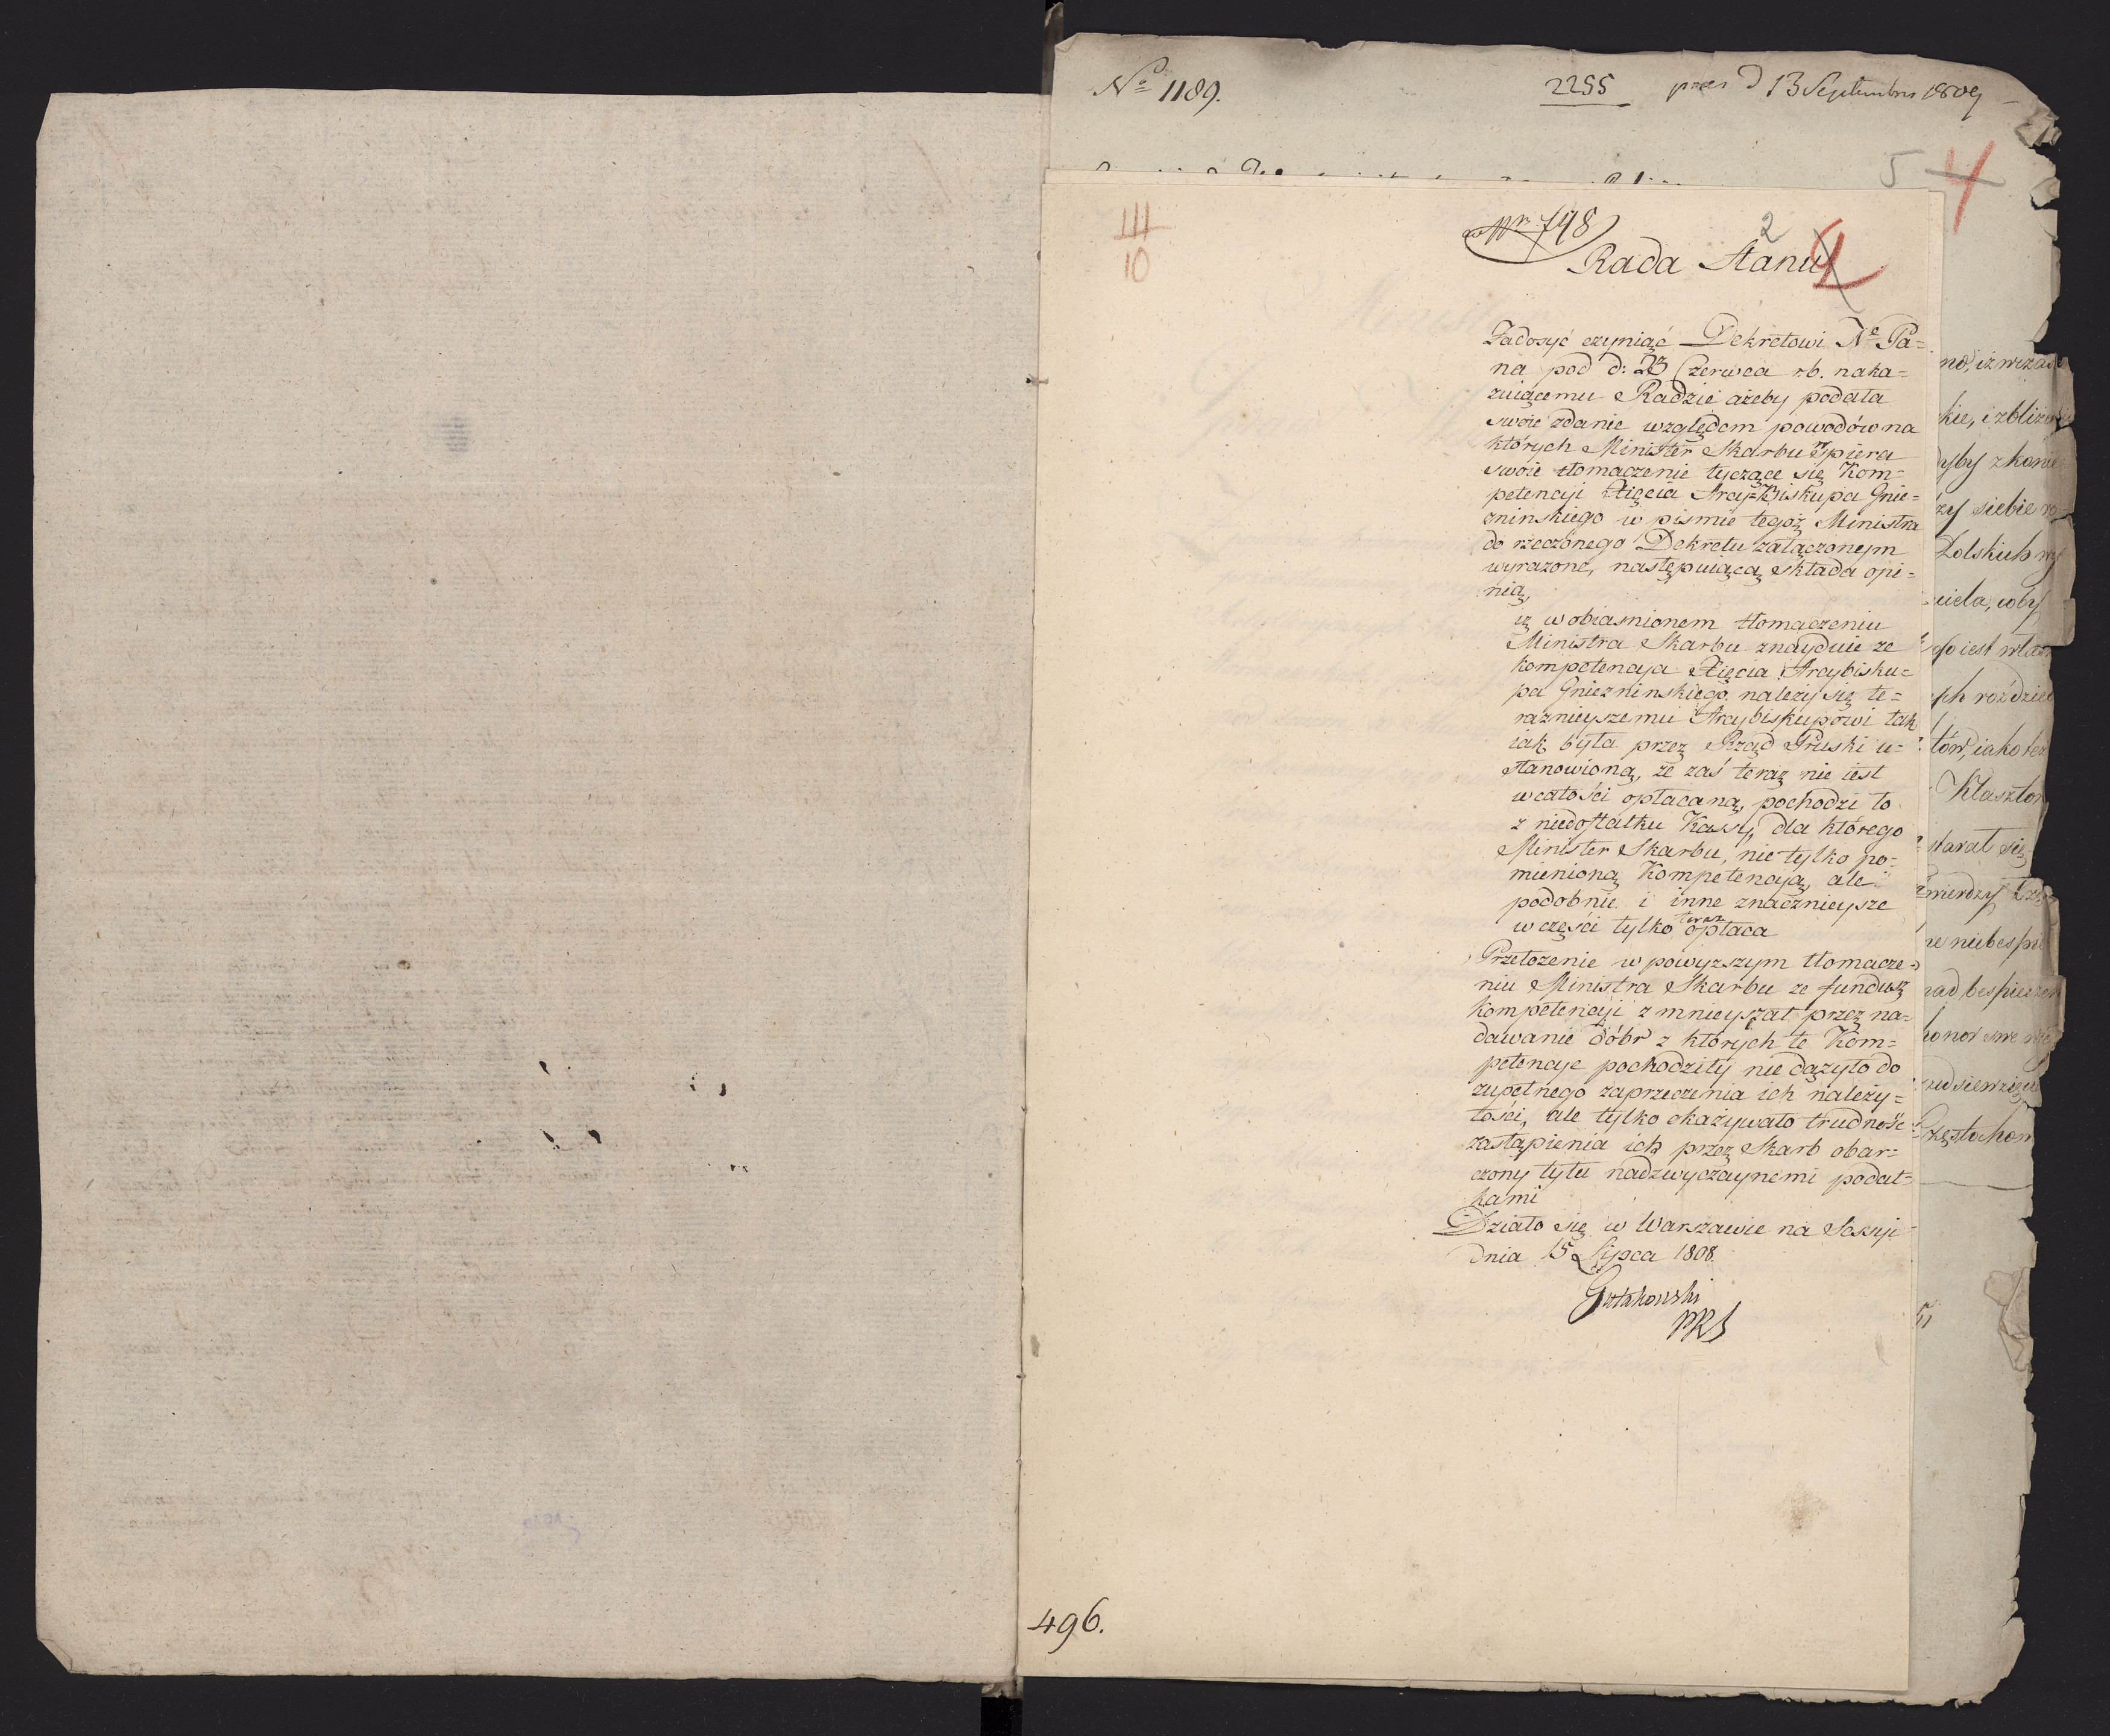 No 1189.
2255 pres d 13 Septembris 1809
5 4
III
10
ad Nr 798
2
Rada Stanu
Zadosyć czyniąc Dekretowi Ne Pa=
na pod d: 23 Czerwca r.b. naka=
zuiącemu Radzie ażeby podała
swoie zdanie względem powodów na
których Minister Skarbu wspiera
swoie tłomaczenie tyczące się Kom=
petencyi Xięcia Arcy=Biskupa Gnie=
zninskiego w pismie tegoż Ministra
do rzeczonego Dekretu załączonym
wyrażone, następuiącą składa opi=
nią,
iż w obiasnionem tłomaczeniu
Ministra Skarbu znayduie że
kompetencya Xięcia Arcybisku=
pa Gnieznińskiego należy się te=
raznieyszemu Arcybiskupowi tak
iak była przez Rząd Pruski u=
stanowioną, że zaś teraz nie iest
w całości opłacaną, pochodzi to
z niedostatku Kassy, dla którego
Minister Skarbu, nie tylko po=
mienioną Kompetencyą, ale
podobnie i inne znacznieysze
w części tylko teraz opłaca
Przełożenie w powyższym tłomacze=
niu Ministra Skarbu że fundusz
kompetencyi zmnieyszał przez na=
dawanie dóbr z których te Kom=
petencye pochodziły nie dążyło do
zupełnego zaprzeczenia ich należy=
tości, ale tylko okazywało trudność
zastąpienia ich przez Skarb obar=
czony tylu nadzwyczaynemi podat=
kami
Działo się w Warszawie na Sessyi
dnia 15 Lipca 1808.
Gutakowski
PRS
496.
kie, i zbliża
dyby z konie
zy siebie
Polskich
go iest
tów, iako też
Klasztor
starał się
nie niebespie
nad bespieczeń
honor swe
Częstochow